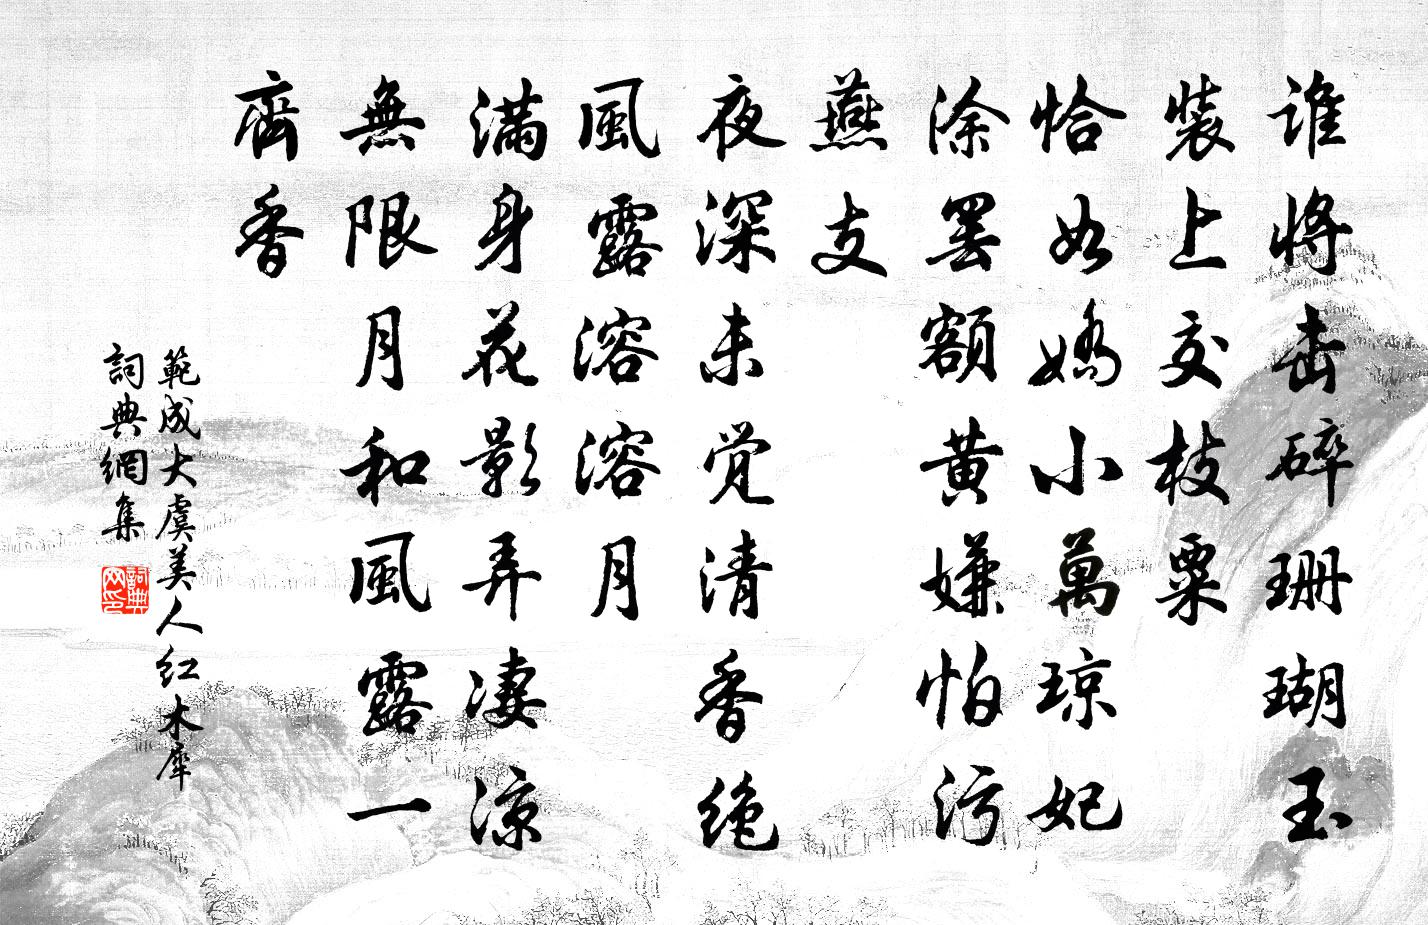 谁将击碎珊瑚玉
裝上交枝粟
恰如嬌小萬琼妃
涂罢額黄嫌怕污
燕支
夜深未觉清香绝
風露溶溶月
滿身花影弄凄凉
無限月和風露一
齊香
範成大虞美人红木犀
詞典網集
詞典网印